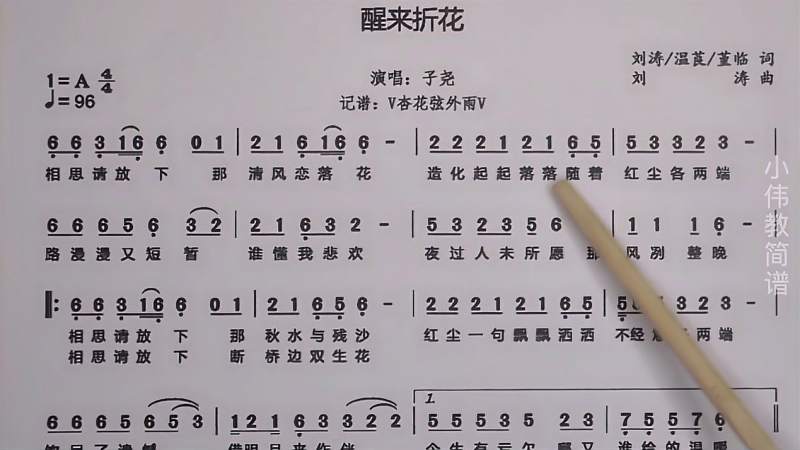 醒来折花
1=A 4/4
刘涛/温莨/董临 词
♩=96
演唱：子尧
刘 涛 曲
记谱：V杏花弦外雨V
6 6 3 1 6 6 0 1 | 2 1 6 1 6 6 - | 2 2 2 1 2 1 6 5 | 5 3 3 2 3 - |
相思请放下 那 清风恋落花 造化起起落落随着 红尘各两端
6 6 6 5 6 3 2 | 2 1 6 3 2 - | 5 3 2 3 5 5 6 | 1 1 1 6 - |
路漫漫又短暂 谁懂我悲欢 夜过人未所愿 那 风冽 整晚
6 6 3 1 6 6 0 1 | 2 1 6 3 6 - | 2 2 2 1 2 1 6 5 | 5 3 2 3 -
相思请放下 那 秋水与残沙 红尘一句飘飘洒洒 不经 两端
相思请放下 断 桥边双生花
6 6 6 6 5 6 5 3 | 1 2 1 6 3 2 2 | 1. 5 5 5 3 0 2 3 | 7 5 5 7 6
小伟教简谱